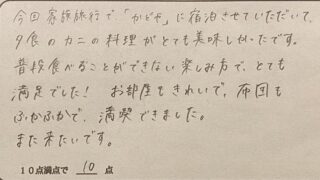 今回家族旅行で「かどや」に宿泊させていただいて、
夕食のカニの料理がとても美味しかったです。
普段食べることができない楽しみ方で、とても
満足でした! お部屋もきれいで、布団も
ふかふかで、満喫できました。
また来たいです。
10点満点で 10 点